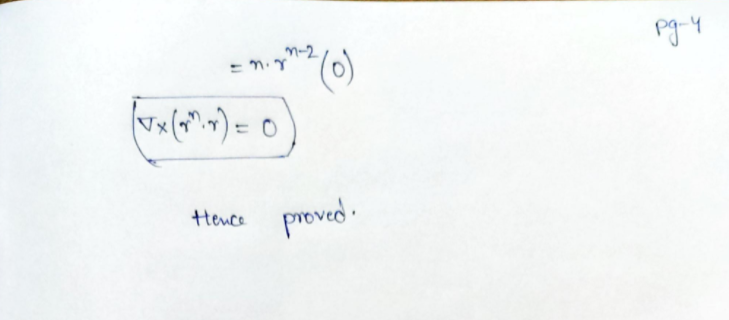 pg-4
= n·r^{n-2}(0)
∇×(r^n·r) = 0
Hence proved.